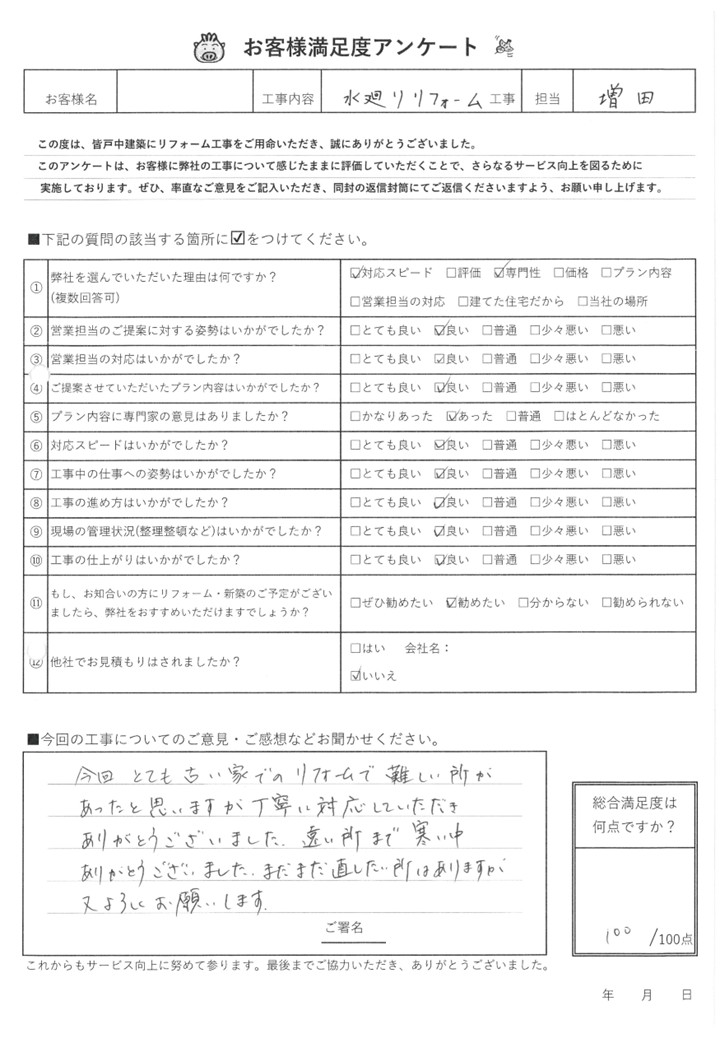 お客様満足度アンケート
お客様名 工事内容 水廻りリフォーム 工事 担当 増田
この度は、皆戸中建築にリフォーム工事をご用命いただき、誠にありがとうございました。
このアンケートは、お客様に弊社の工事について感じたままに評価していただくことで、さらなるサービス向上を図るために
実施しております。ぜひ、率直なご意見をご記入いただき、同封の返信封筒にてご返信くださいますよう、お願い申し上げます。
■下記の質問の該当する箇所に☑をつけてください。
① 弊社を選んでいただいた理由は何ですか? ☑対応スピード □評価 ☑専門性 □価格 □プラン内容
(複数回答可) □営業担当の対応 □建てた住宅だから □当社の場所
② 営業担当のご提案に対する姿勢はいかがでしたか? □とても良い ☑良い □普通 □少々悪い □悪い
③ 営業担当の対応はいかがでしたか? □とても良い ☑良い □普通 □少々悪い □悪い
④ ご提案させていただいたプラン内容はいかがでしたか? □とても良い ☑良い □普通 □少々悪い □悪い
⑤ プラン内容に専門家の意見はありましたか? □かなりあった ☑あった □普通 □ほとんどなかった
⑥ 対応スピードはいかがでしたか? □とても良い ☑良い □普通 □少々悪い □悪い
⑦ 工事中の仕事への姿勢はいかがでしたか? □とても良い ☑良い □普通 □少々悪い □悪い
⑧ 工事の進め方はいかがでしたか? □とても良い ☑良い □普通 □少々悪い □悪い
⑨ 現場の管理状況(整理整頓など)はいかがでしたか? □とても良い ☑良い □普通 □少々悪い □悪い
⑩ 工事の仕上がりはいかがでしたか? □とても良い ☑良い □普通 □少々悪い □悪い
⑪ もし、お知合いの方にリフォーム・新築のご予定がござい
ましたら、弊社をおすすめいただけますでしょうか? □ぜひ勧めたい ☑勧めたい □分からない □勧められない
⑫ 他社でお見積もりはされましたか? □はい 会社名:
☑いいえ
■今回の工事についてのご意見・ご感想などお聞かせください。
今回 とても古い家でのリフォームで難しい所が
あったと思いますが丁寧に対応していただき
ありがとうございました。遠い所まで寒い中
ありがとうございました。まだまだ直したい所はありますが
又よろしくお願いします。
ご署名
総合満足度は
何点ですか?
100 /100点
これからもサービス向上に努めて参ります。最後までご協力いただき、ありがとうございました。
年 月 日